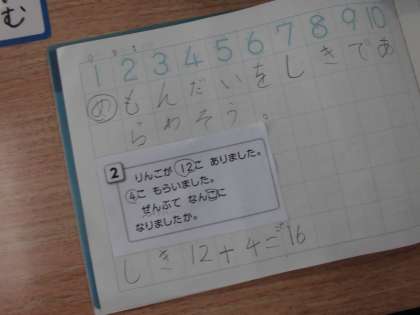 む
1 2 3 4 5 6 7 8 9 10
め もんだいをしきであ
らわそう。
2
りんごが 12こ ありました。
4こ もらいました。
ぜんぶで なんこに
なりましたか。
しき 12+4=16